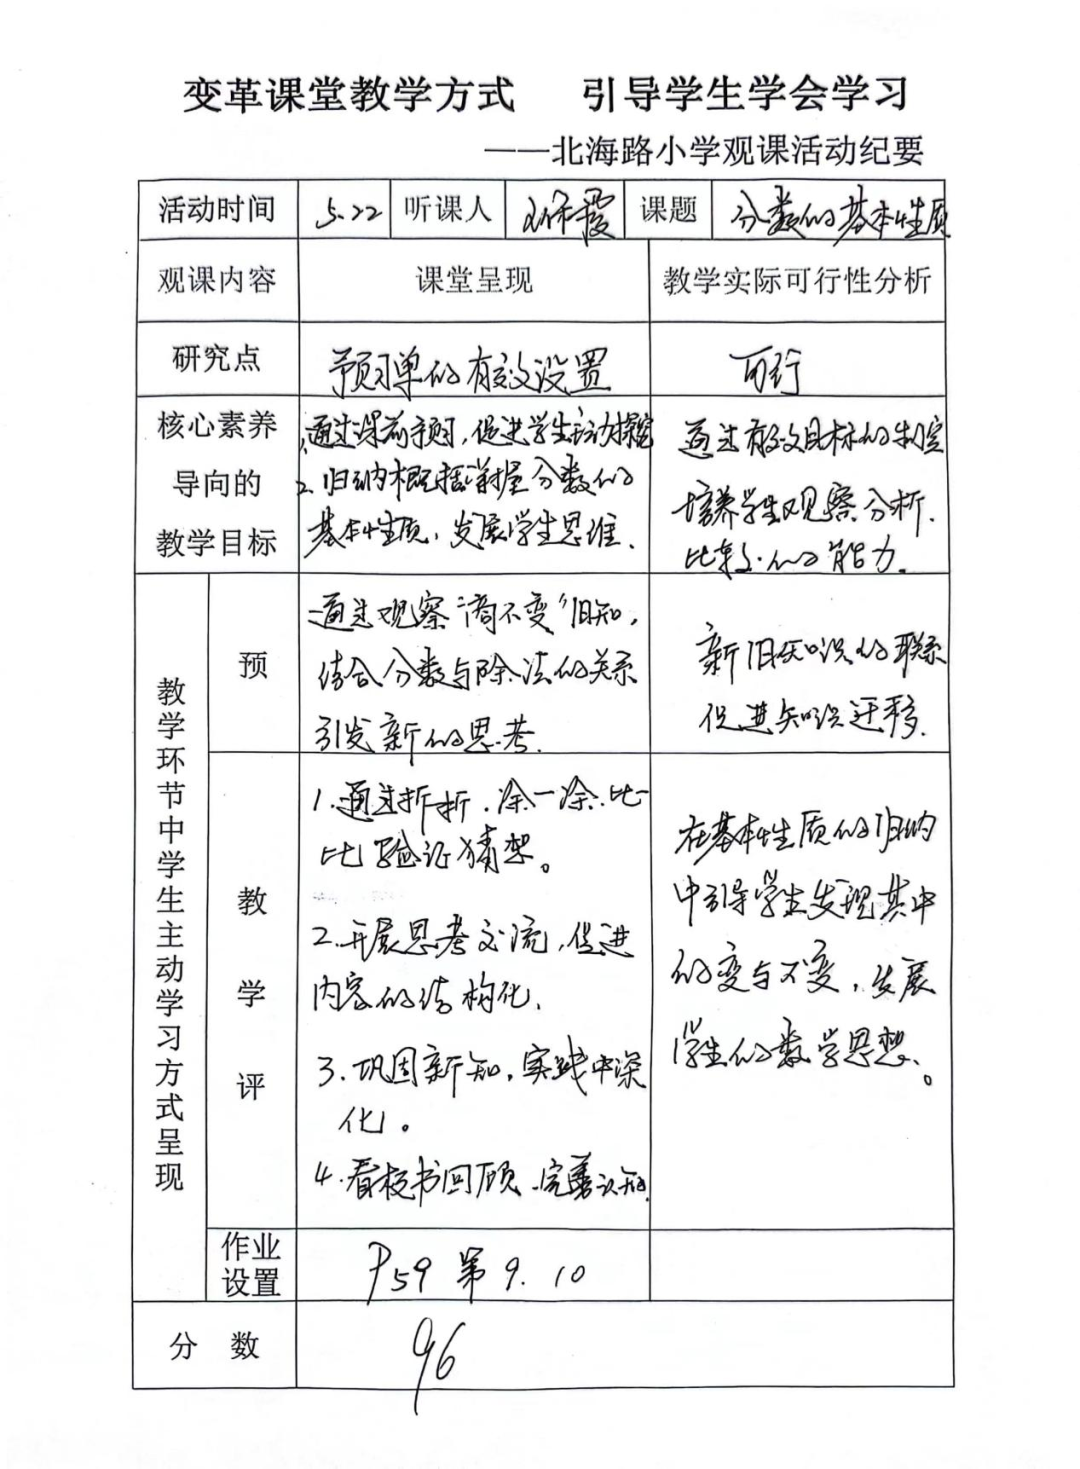 变革课堂教学方式 引导学生学会学习
——北海路小学观课活动纪要
活动时间 5.22 听课人 课题 分数的基本性质
观课内容 课堂呈现 教学实际可行性分析
研究点 预习单的有效设置 可行
核心素养
导向的
教学目标
1.通过课前预习,促进学生主动探究
2.归纳概括掌握分数的
基本性质,发展学生思维.
通过有效目标的制定
培养学生观察分析.
比较.的能力.
教学环节中学生主动学习方式呈现
预
通过观察“商不变”旧知,
结合分数与除法的关系
引发新的思考.
新旧知识的联系
促进知识迁移.
教
学
评
1.通过折折.涂一涂.比一
比验证猜想。
2.开展思考交流,促进
内容的结构化.
3.巩固新知,实践中深
化。
4.看板书回顾.完善认知.
在基本性质的归纳
中引导学生发现其中
的变与不变,发展
学生的数学思想。
作业
设置
P59 第9. 10
分 数 96